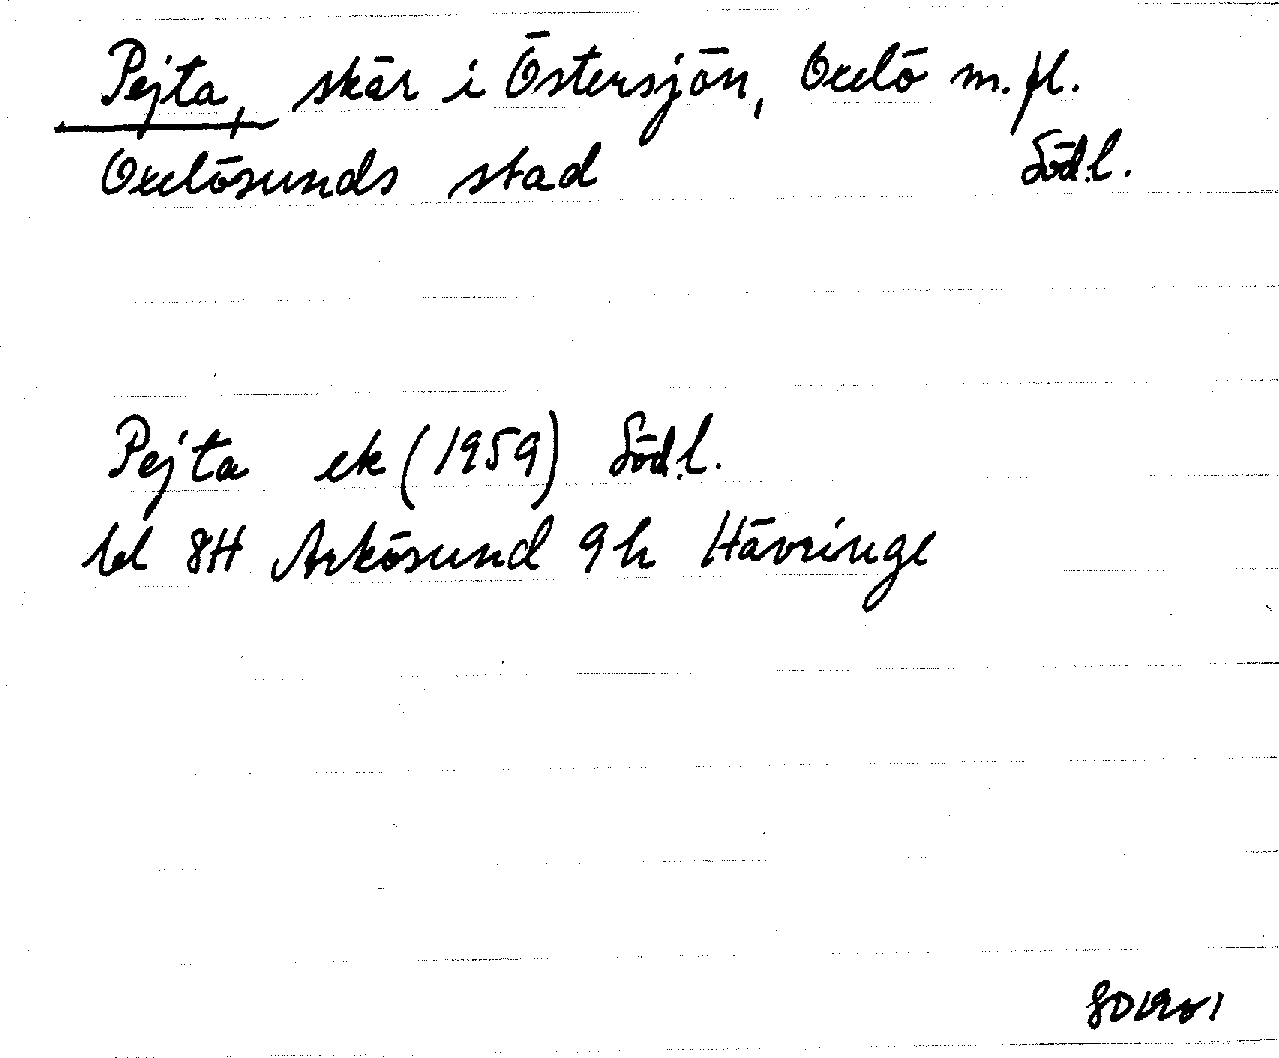 Pejta, skär i Östersjön, Oxelö m.fl.
Oxelösunds stad Södl.
Pejta ek (1959) Södl.
bl 8H Arkösund 9h Hävringe